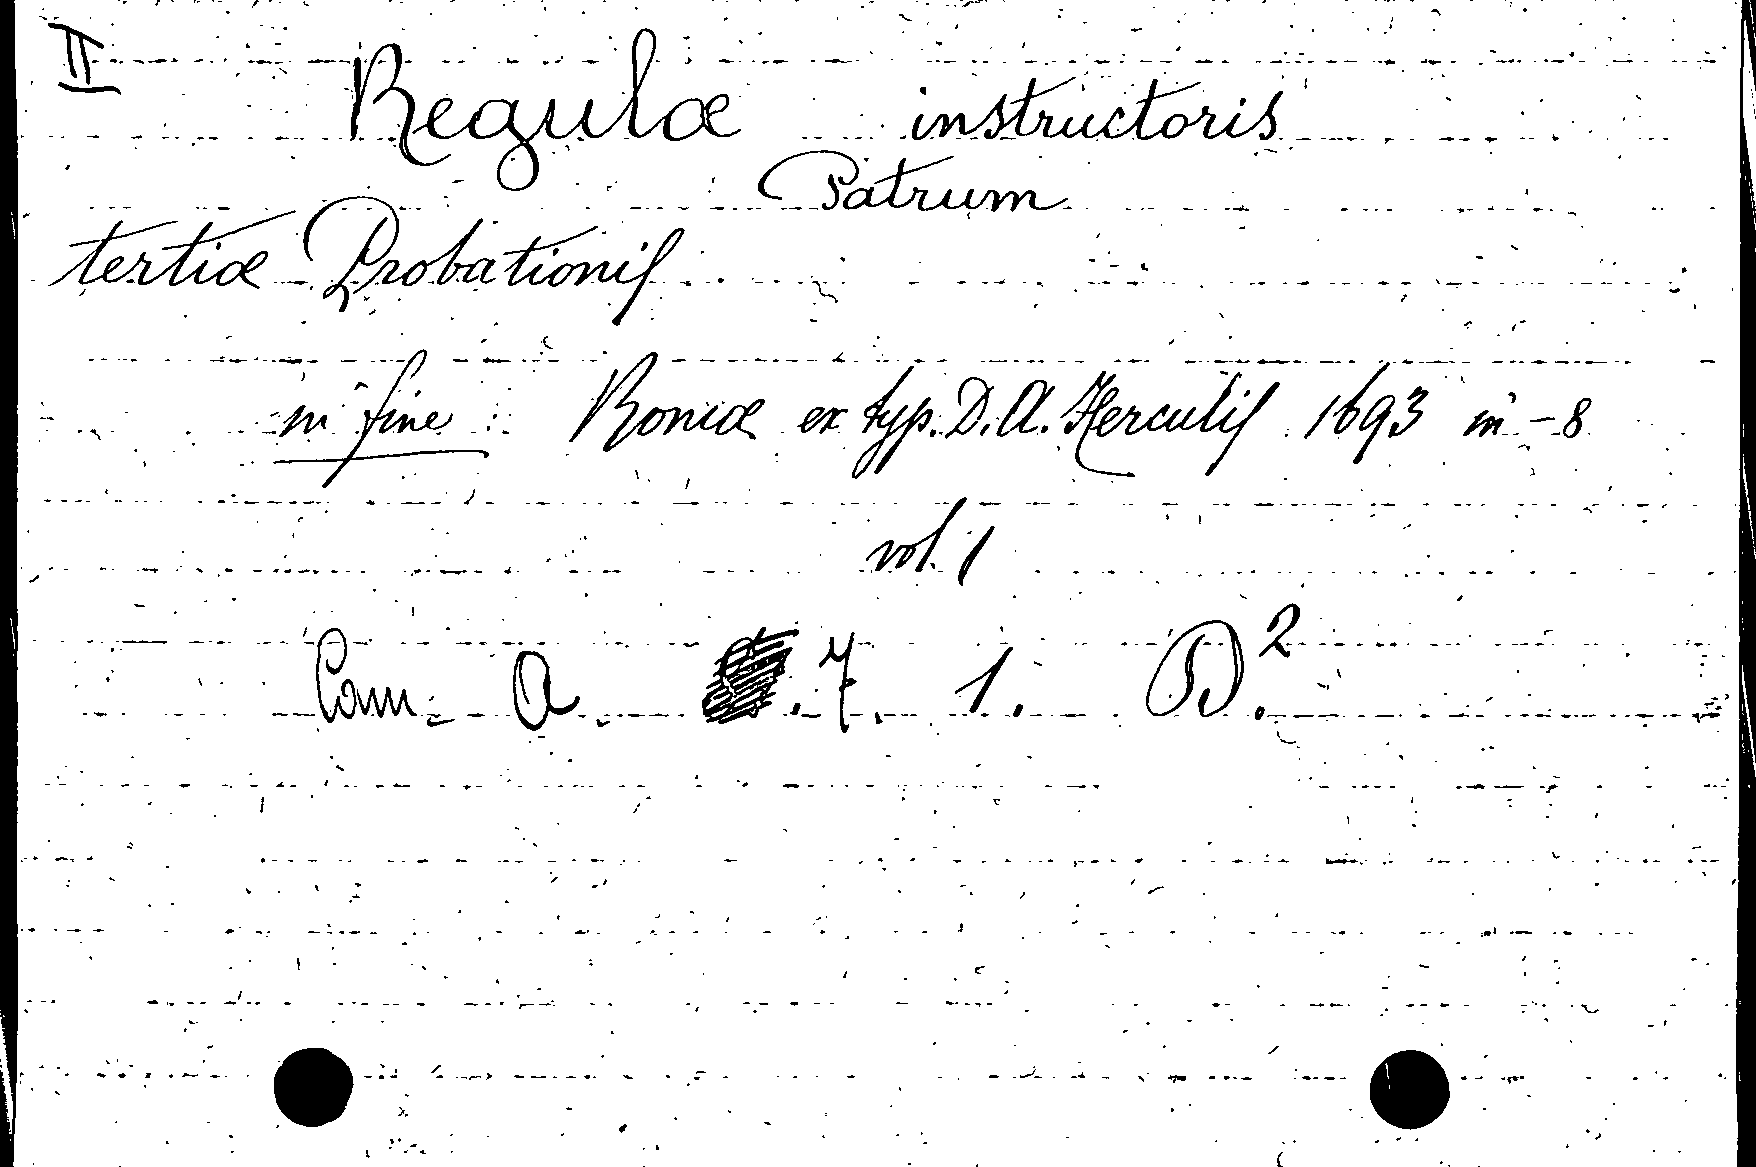 II
Regulæ instructoris
Patrum
tertiæ Probationis
in fine: Romæ ex typ. D. A. Herculis 1693 in-8
vol. 1
Cam. A. .7. 1. D.²